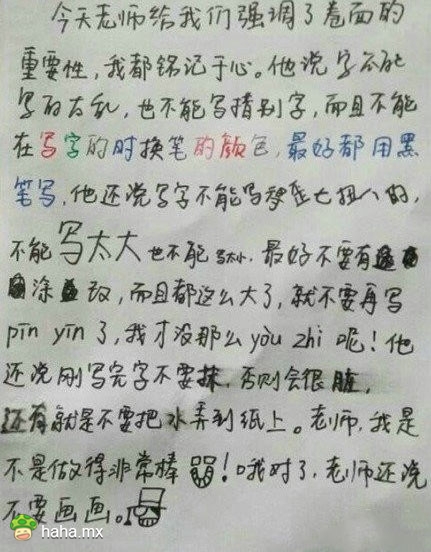 今天老师给我们强调了卷面的
重要性，我都铭记于心。他说字不能
写的太乱，也不能写错别字，而且不能
在写字的时换笔的颜色，最好都用黑
笔写，他还说写字不能写歪七扭八的，
不能写太大也不能写太小，最好不要有
涂改，而且都这么大了，就不要再写
pīn yīn了，我才没那么yòu zhì呢！他
还说刚写完字不要抹，否则会很脏，
还有就是不要把水弄到纸上。老师，我是
不是做得非常棒！哦对了，老师还说
不要画画。
haha.mx